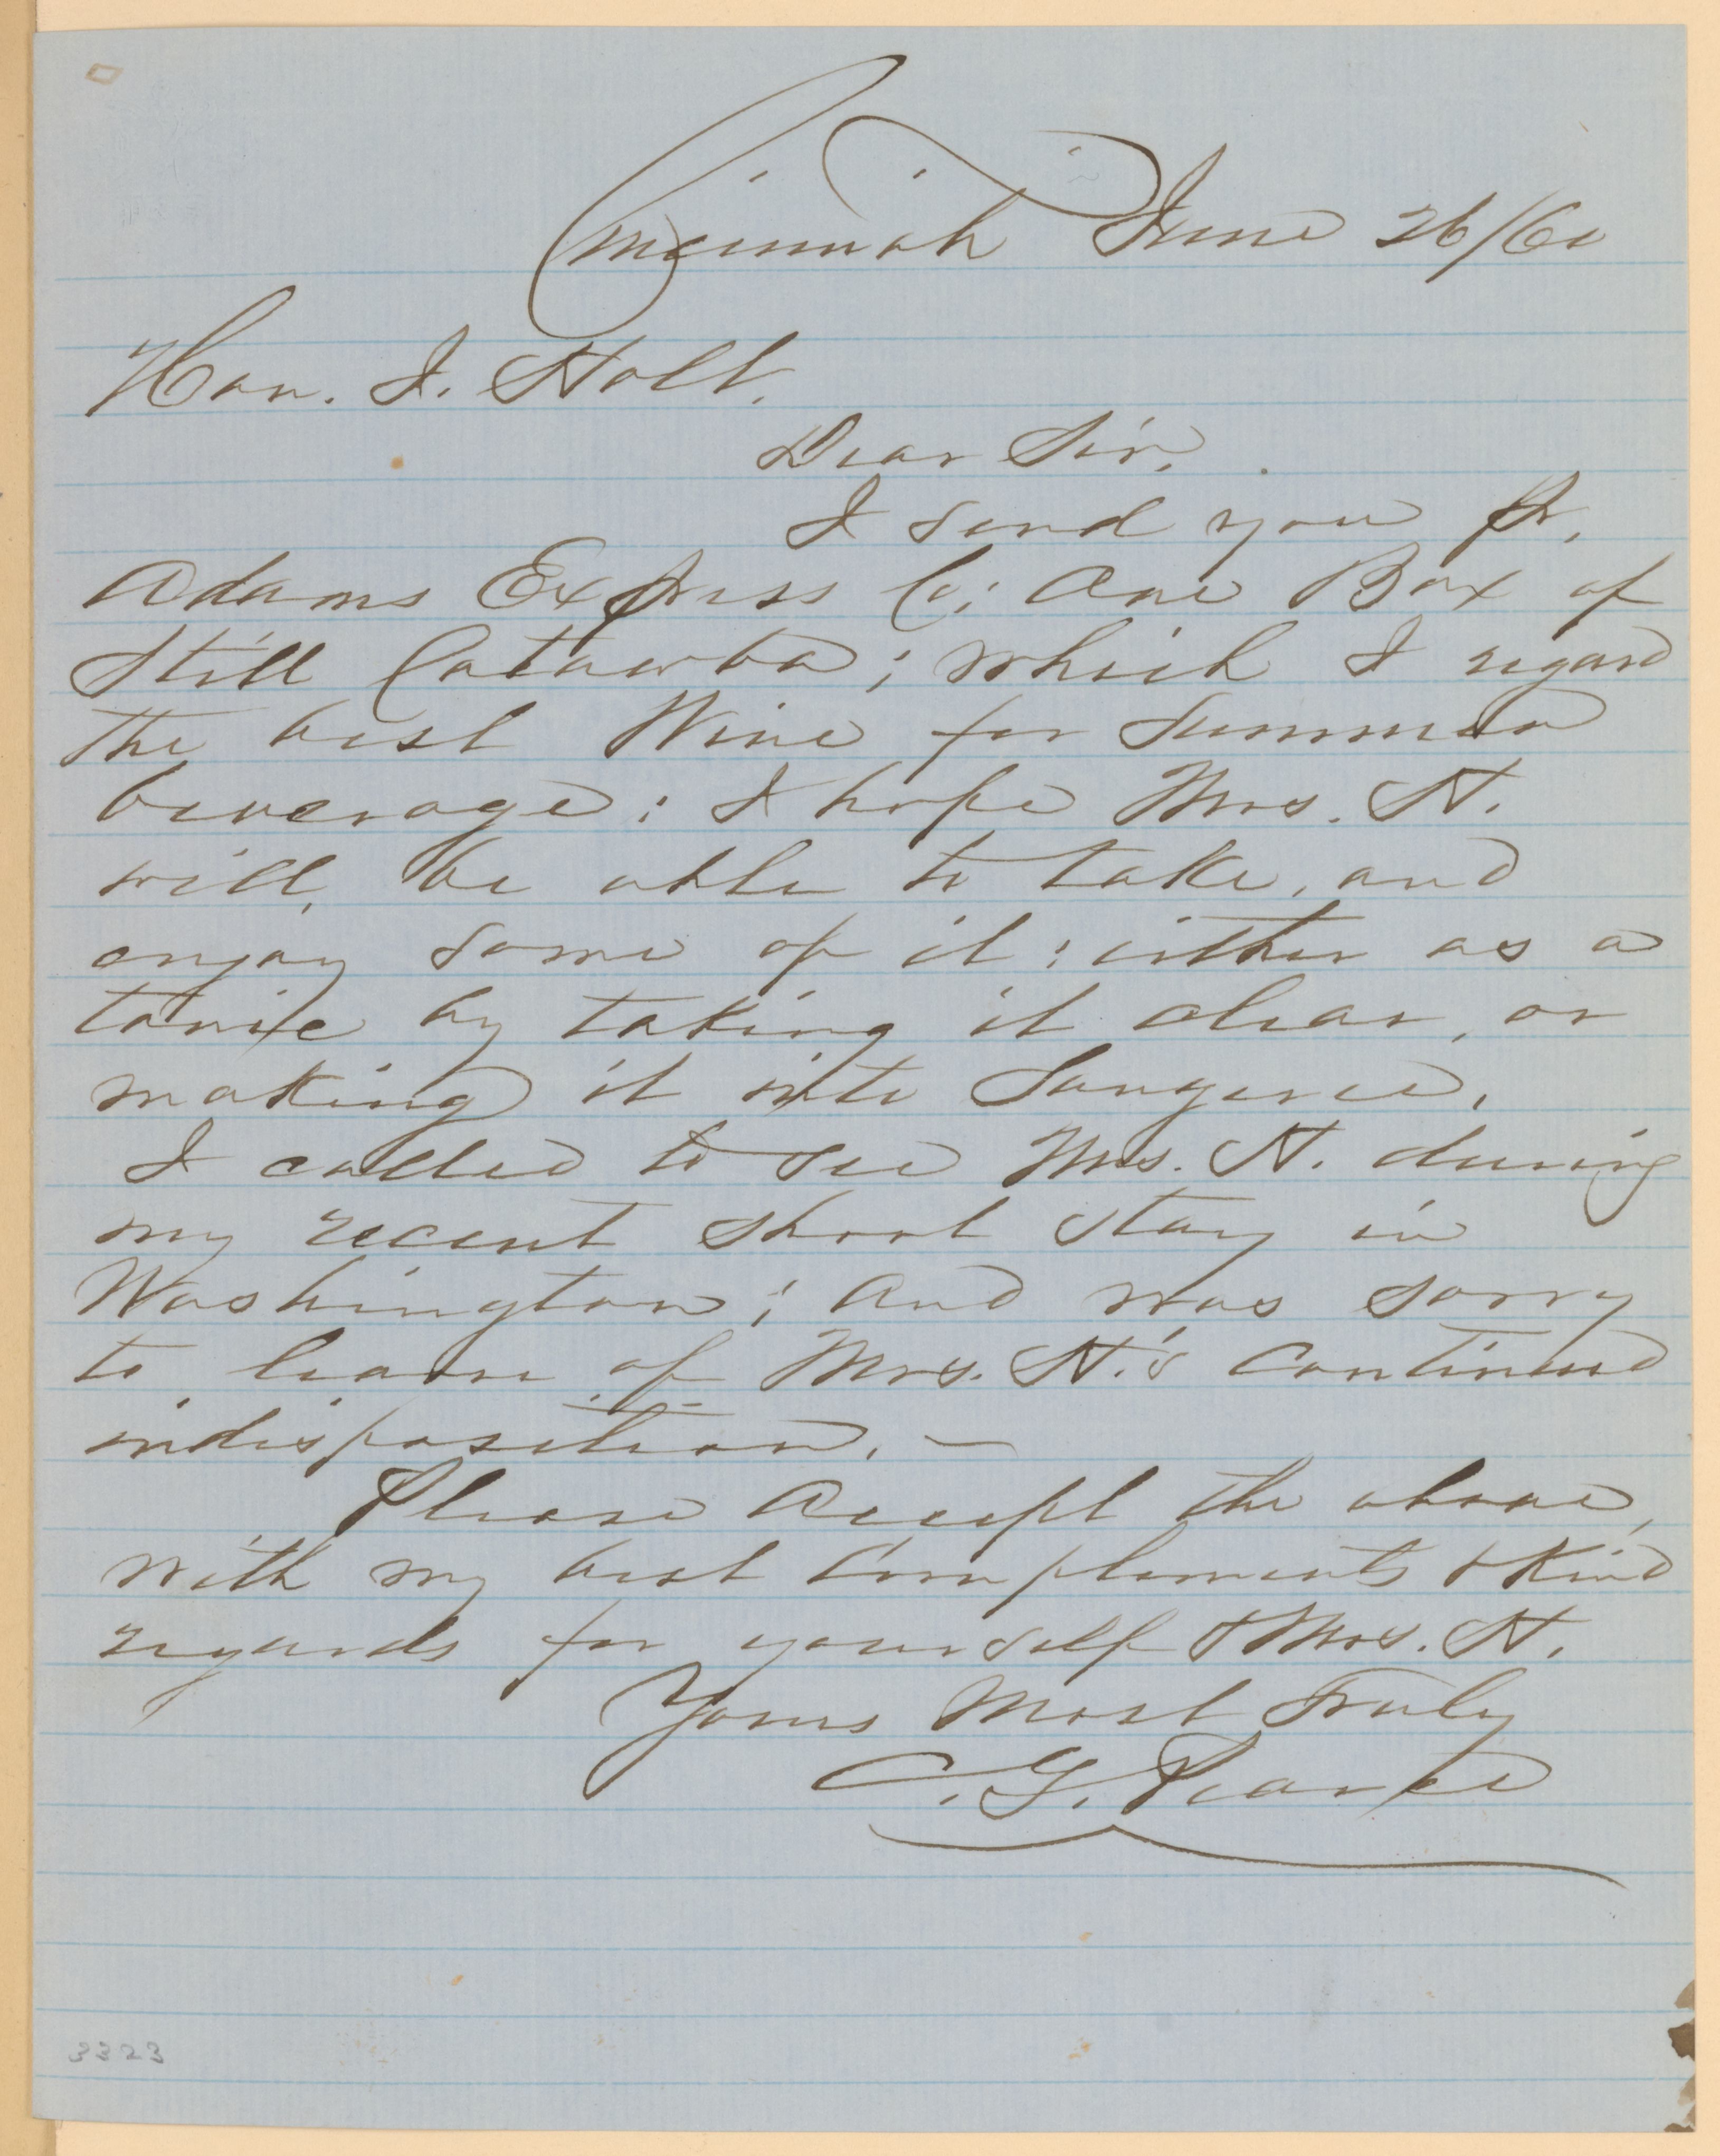 Cincinnati June 26/60
Hon. J. Holt.
Dear Sir,
I send you pr.
Adams Express Co; One Box of
Still Catawba; which I regard
the best Wine for Summer
beverage; I hope Mrs. H.
will, be able to take, and
enjoy some of it; either as a
tonic by taking it clear, or
making it into Sangeree,
I called to see Mrs. H. during
my recent short stay in
Washington; and was sorry
to learn of Mrs. H.'s continued
indisposition. —
Please Accept the above,
with my best Compliments & Kind
regards for yourself & Mrs. H.
Yours Most Truly
C. G. Pearce
3323